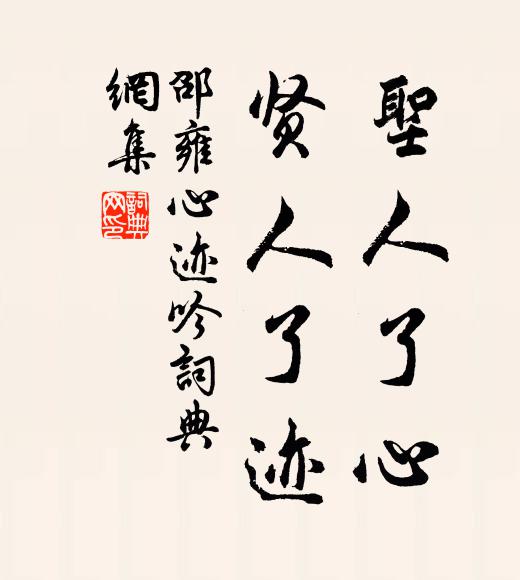 聖人了心
贤人了迹
邵雍心迹吟詞典
網集
詞典
网印